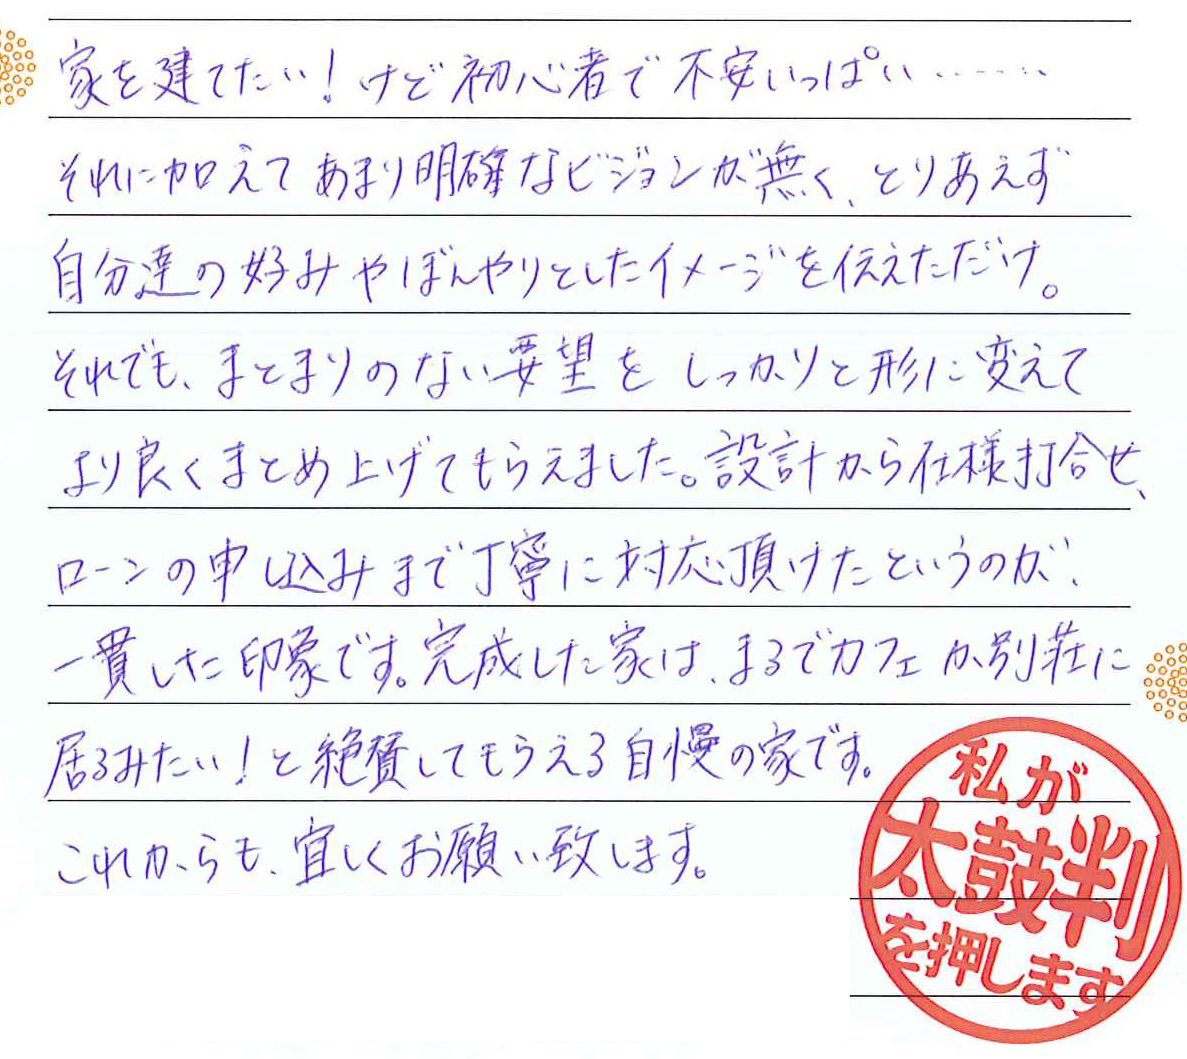 家を建てたい！けど初心者で不安いっぱい……
それに加えてあまり明確なビジョンが無く、とりあえず
自分達の好みやぼんやりとしたイメージを伝えただけ。
それでも、まとまりのない要望をしっかりと形に変えて
より良くまとめ上げてもらえました。設計から仕様打合せ、
ローンの申し込みまで丁寧に対応頂けたというのが、
一貫した印象です。完成した家は、まるでカフェか別荘に
居るみたい！と絶賛してもらえる自慢の家です。
これからも、宜しくお願い致します。
私が
太鼓判
を押します